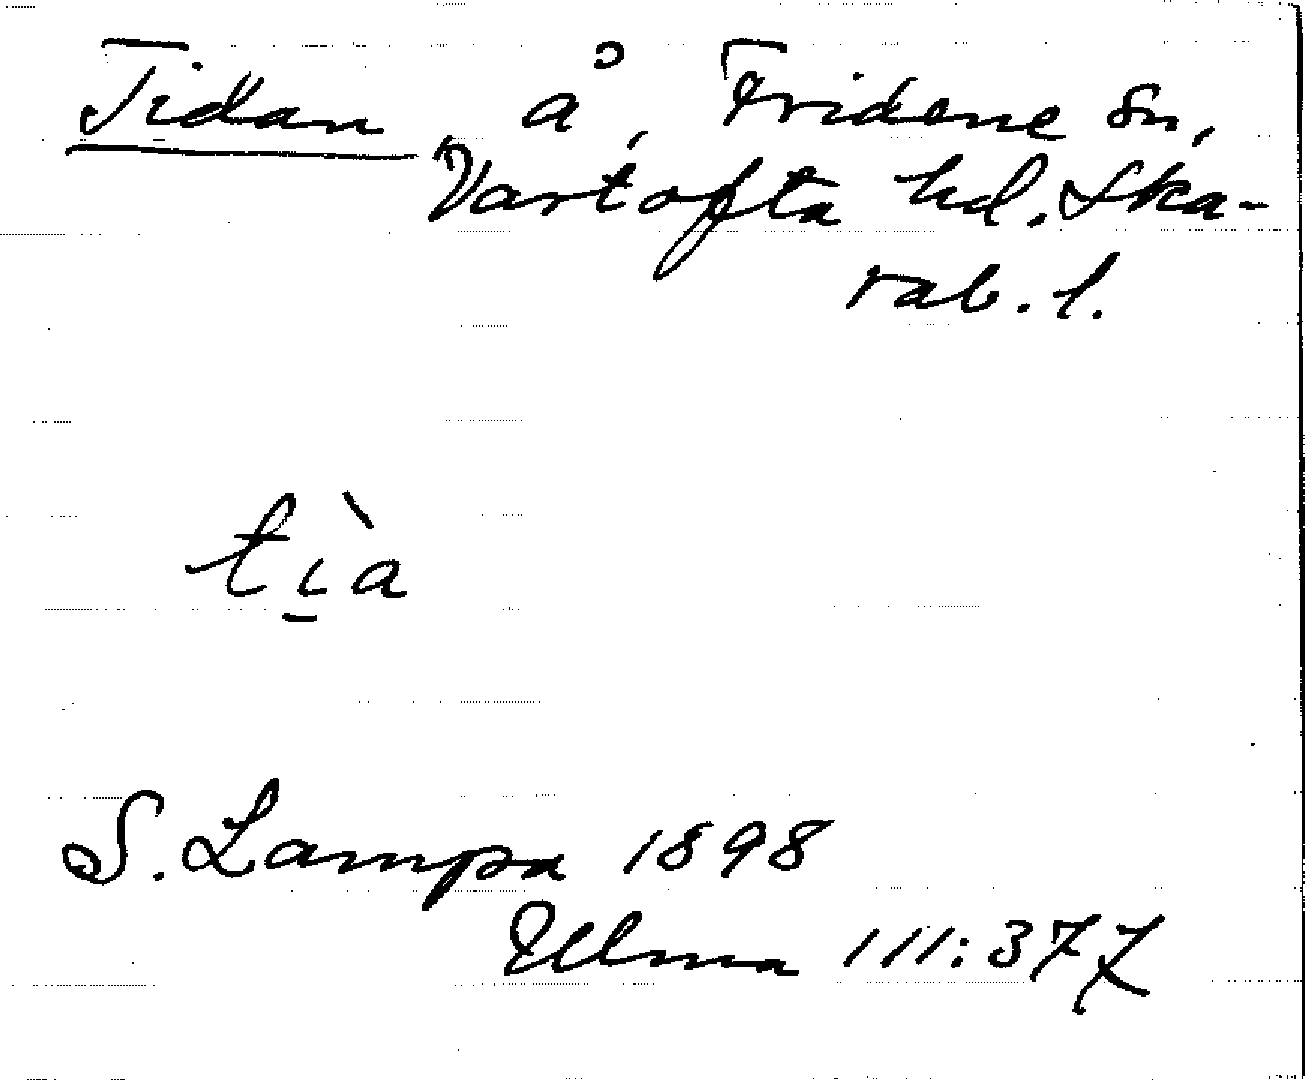 Tidan, å, Fridene sn,
Vartofta hd. Ska-
rab. l.
tì̱a
S. Lampa 1898
Ulma 111:377